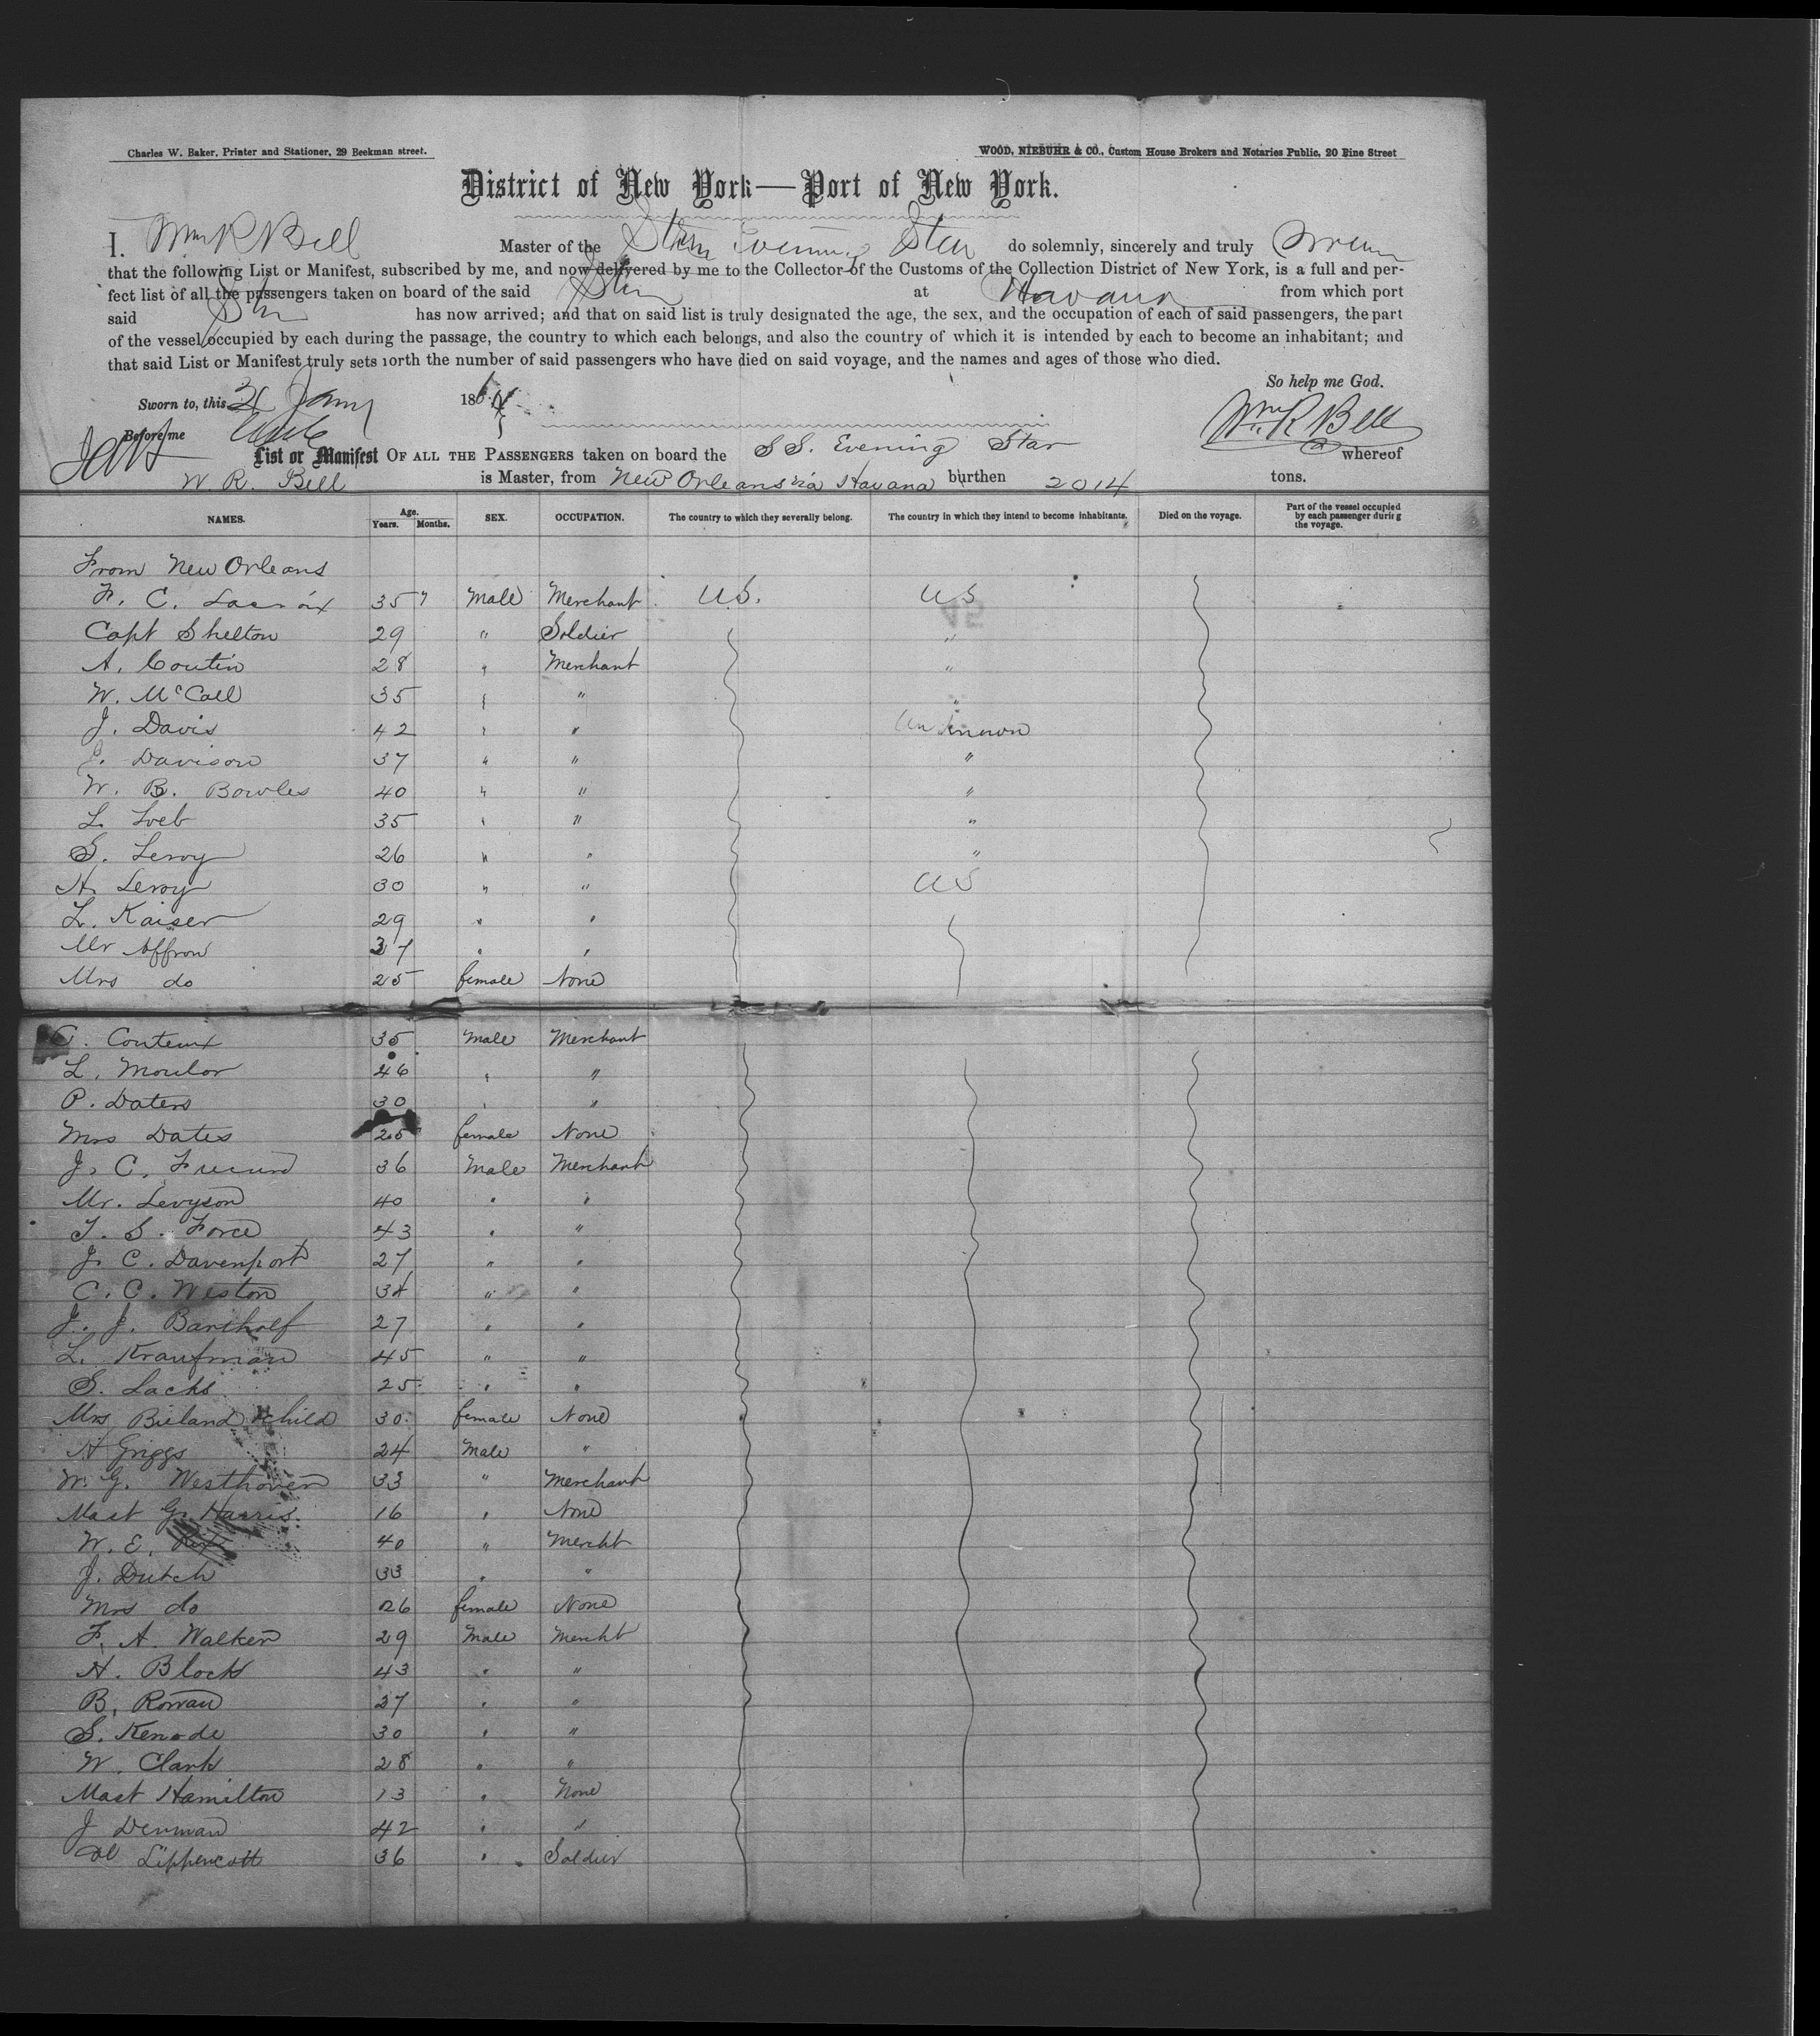 Charles W. Baker, Printer and Stationer, 29 Beekman street.
WOOD, NIEBUHR & CO., Custom House Brokers and Notaries Public, 20 Pine Street
District of New York—Port of New York.
I, Wm R Bell Master of the Star do solemnly, sincerely and truly
that the following List or Manifest, subscribed by me, and now delivered by me to the Collector of the Customs of the Collection District of New York, is a full and per-
fect list of all the passengers taken on board of the said Str at Havana from which port
said Str has now arrived; and that on said list is truly designated the age, the sex, and the occupation of each of said passengers, the part
of the vessel occupied by each during the passage, the country to which each belongs, and also the country of which it is intended by each to become an inhabitant; and
that said List or Manifest truly sets forth the number of said passengers who have died on said voyage, and the names and ages of those who died.
So help me God.
Sworn to, this 21 Jany 1864
Wm R Bell
Before me
List or Manifest OF ALL THE PASSENGERS taken on board the S S. Evening Star whereof
W. R. Bell is Master, from New Orleans via Havana burthen 2014 tons.
NAMES. Age. Years. Months. SEX. OCCUPATION. The country to which they severally belong. The country in which they intend to become inhabitants. Died on the voyage. Part of the vessel occupied by each passenger during the voyage.
From New Orleans
F. C. Lacroix 35 Male Merchant U.S. US
Capt Shelton 29 " Soldier "
A. Coutin 28 " Merchant "
W. McCall 35 " " "
J. Davis 42 " " Unknown
J. Davison 37 " " "
W. B. Bowles 40 " " "
L. Loeb 35 " " "
S. Leroy 26 " " "
H. Leroy 30 " " US
L. Kaiser 29 " "
Mr Affron 37 " "
Mrs do 25 female None
Conteux 35 Male Merchant
L. Moulor 46 " "
P. Daters 30 " "
Mrs Dates 25 female None
J. C. 36 Male Merchant
Mr. Levyson 40 " "
T. S. Force 43 " "
J. C. Davenport 27 " "
C. C. Weston 34 " "
J. J. Bartholf 27 " "
L. Kraufman 45 " "
S. Lachs 25 " "
Mrs Bieland & child 30 female None
H Griggs 24 Male "
W. G. Westhoven 33 " Merchant
Mast G. Harris 16 " None
W. E. 40 " Mercht
J. Dutch 33 " "
Mrs do 26 female None
F. A. Walker 29 Male Mercht
H. Block 43 " "
B. Rowan 27 " "
S. Kenode 30 " "
W. Clark 28 " "
Mast Hamilton 13 " None
J Denman 42 " "
Lippencott 36 " Soldier